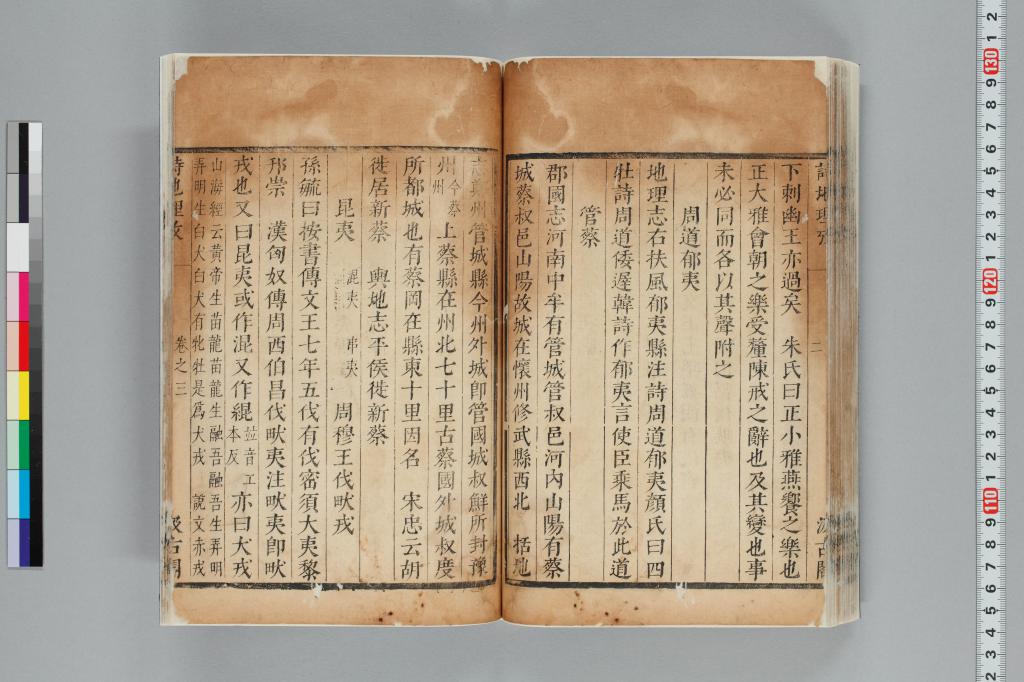 詩地理攷 二 汲古閣
下刺幽王亦過矣 朱氏曰正小雅燕饗之樂也
正大雅會朝之樂受釐陳戒之辭也及其變也事
未必同而各以其聲附之
周道郁夷
地理志右扶風郁夷縣注詩周道郁夷顏氏曰四
牡詩周道倭遲韓詩作郁夷言使臣乘馬於此道
管蔡
郡國志河南中牟有管城管叔邑河內山陽有蔡
城蔡叔邑山陽故城在懷州修武縣西北 括地
志鄭州管城縣今州外城卽管國城叔鮮所封豫
州今蔡州上蔡縣在州北七十里古蔡國外城叔度
所都城也有蔡岡在縣東十里因名 宋忠云胡
徙居新蔡 輿地志平侯徙新蔡
昆夷 混夷 串夷
周穆王伐畎戎
孫毓曰按書傳文王七年五伐有伐密須大夷黎
邘崇 漢匈奴傳周西伯昌伐畎夷注畎夷卽畎
戎也又曰昆夷或作混又作緄並音工本反亦曰犬戎
山海經云黃帝生苗龍苗龍生融吾融吾生弄明
弄明生白犬白犬有牝牡是爲犬戎 說文赤戎
詩地理攷 卷之三 汲古閣